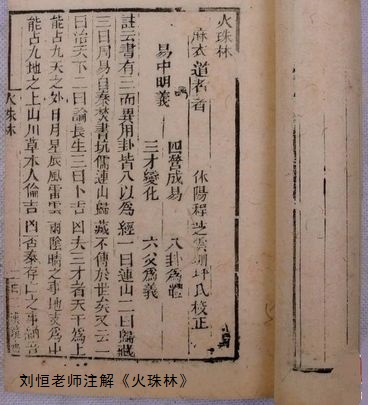 火珠林
麻衣道者著 休陽程芝雲坪氏校正
易中明義 四營成易 八卦為體
三才變化 六爻為義
註云書有三而異用卦皆八以為經一曰連山二曰歸藏
三曰周易自秦焚書坑儒連山歸藏不傳於世矣又云一
曰治天下二曰論長生三曰卜吉凶夫三才者天為上
能占九天之外日月星辰風雷雲雨陰晴之事地為中
能占九地之上山川草木人倫吉凶否泰存亡之事
火珠林
刘恒老师注解《火珠林》